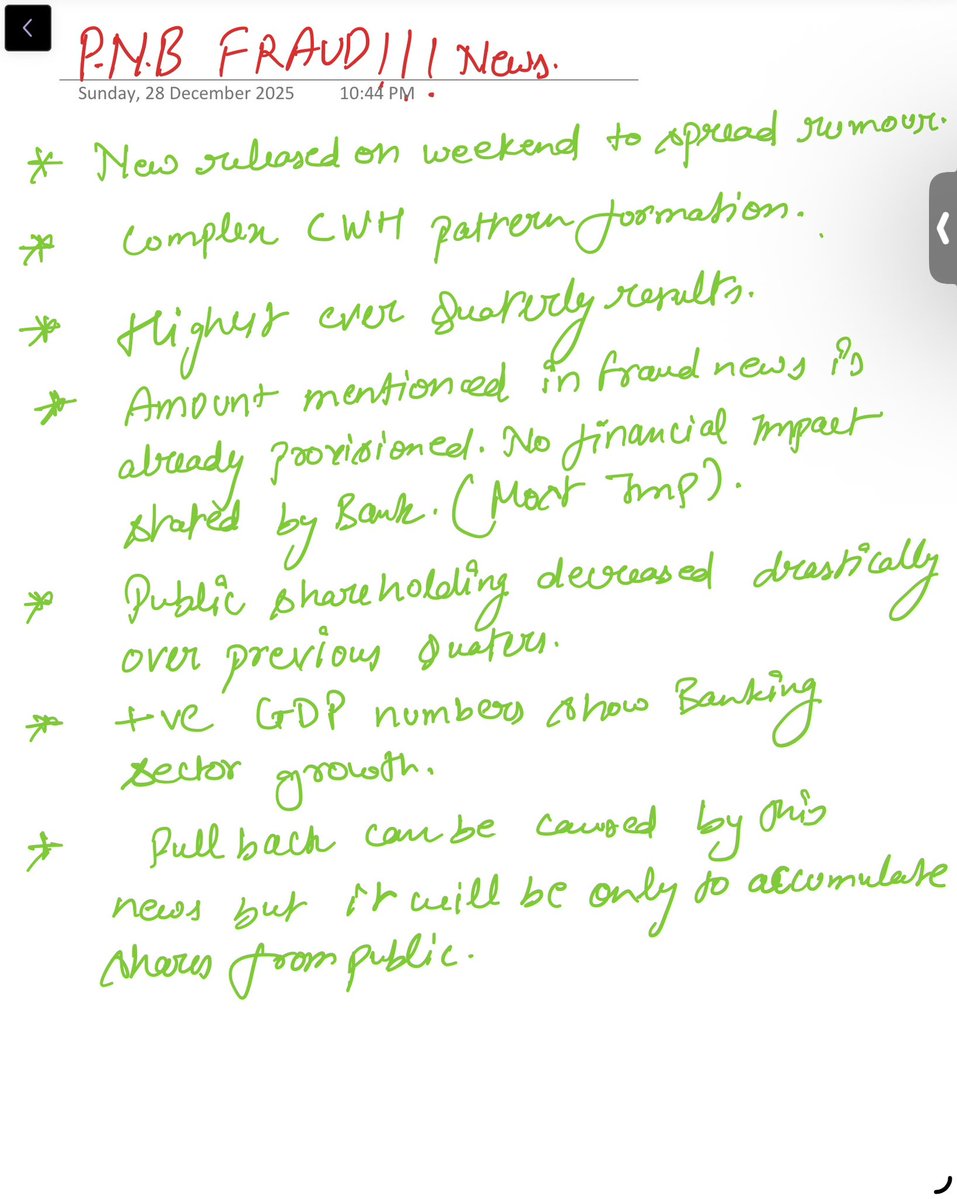 P.N.B FRAUD!!! News.
Sunday, 28 December 2025 10:44 PM
* New released on weekend to spread rumour.
* Complex CWH pattern formation.
* Highest ever Quaterly results.
* Amount mentioned in fraud news is
already provisioned. No financial Impact
stated by Bank. (Most Imp).
* Public shareholding decreased drastically
over previous Quaters.
* +ve GDP numbers show Banking
sector growth.
* Pull back can be caused by this
news but it will be only to accumulate
shares from public.